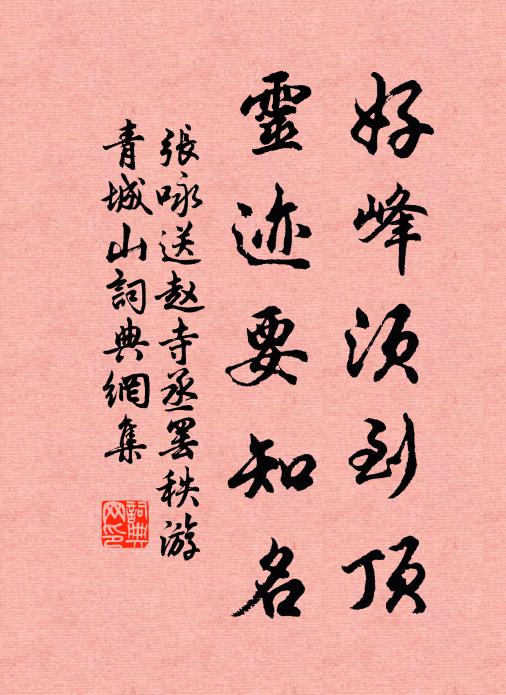 好峰须到顶
靈迹要知名
張咏送赵寺丞罢秩游
青城山詞典網集
詞典网印